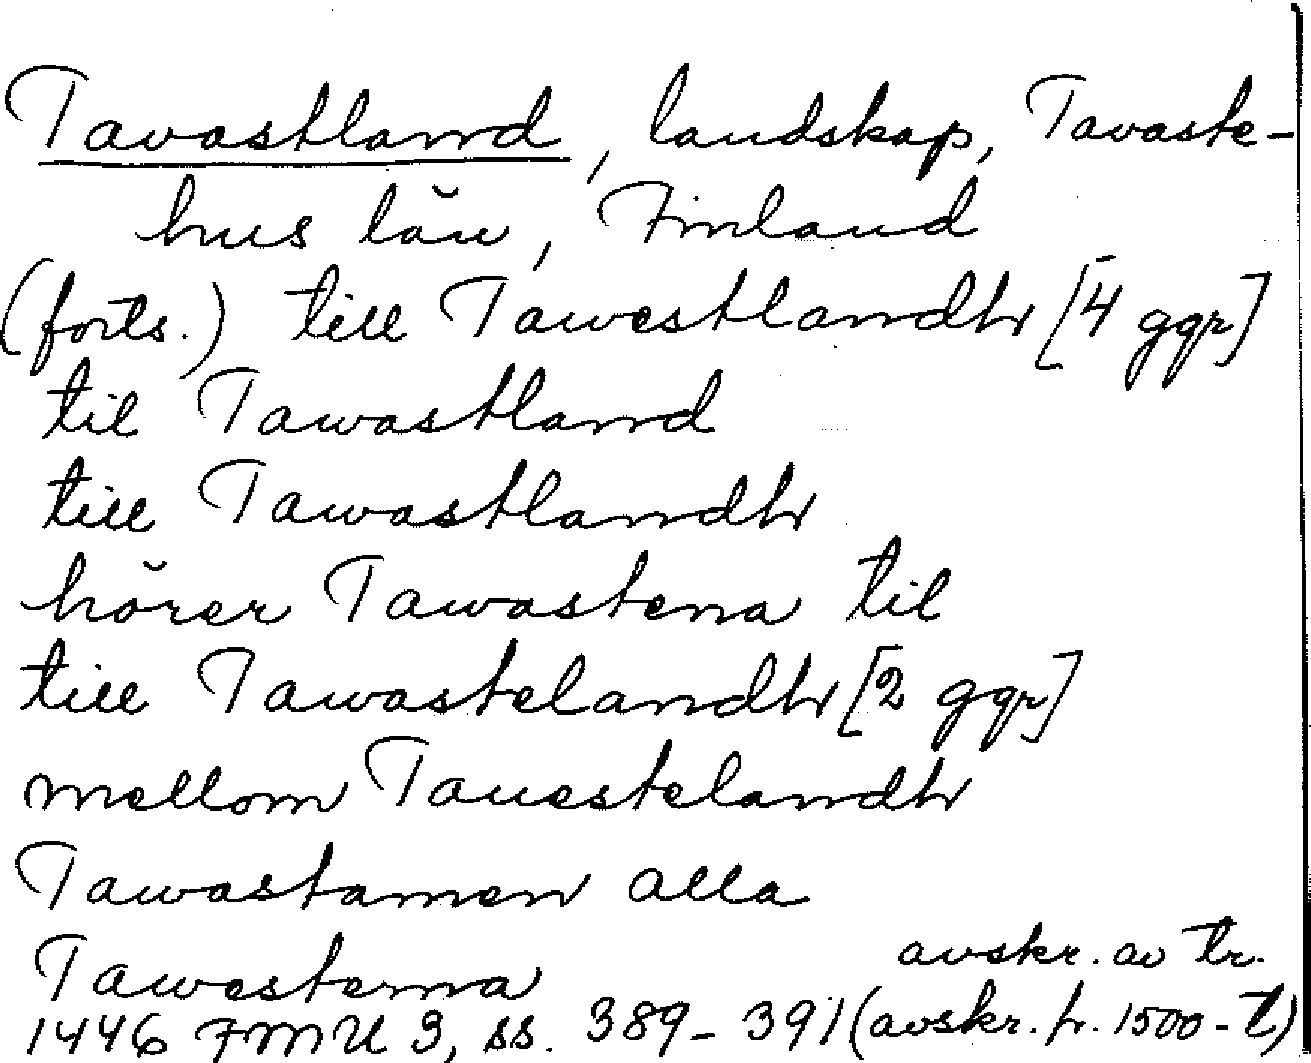 Tavastland, landskap, Tavaste-
hus län, Finland
(forts.) till Tawestlandh [4 ggr]
til Tawastland
till Tawastlandh
hörer Tawastena til
till Tawastelandh [2 ggr]
mellom Tauestelandh
Tawastamen alla
Tawesterna avskr. av tr.
1446 FMU 3, ss. 389-391 (avskr. fr. 1500-t)